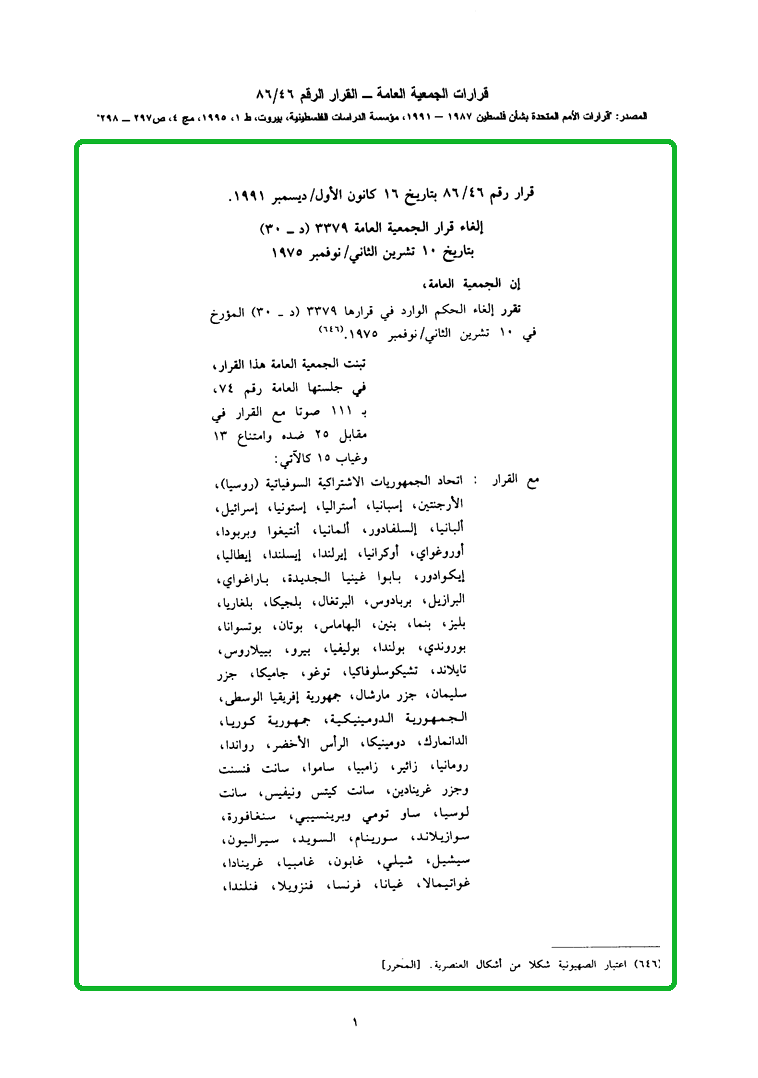 قرارات الجمعية العامة ــ القرار الرقم ٨٦/٤٦
المصدر: "قرارات الأمم المتحدة بشأن فلسطين ١٩٨٧ – ١٩٩١، مؤسسة الدراسات الفلسطينية، بيروت، ط ١، ١٩٩٥، مج ٤، ص٢٩٧ ــ ٢٩٨"
قرار رقم ٨٦/٤٦ بتاريخ ١٦ كانون الأول/ديسمبر ١٩٩١.
إلغاء قرار الجمعية العامة ٣٣٧٩ (د ــ ٣٠)
بتاريخ ١٠ تشرين الثاني/نوفمبر ١٩٧٥
إن الجمعية العامة،
تقرر إلغاء الحكم الوارد في قرارها ٣٣٧٩ (د ــ ٣٠) المؤرخ
في ١٠ تشرين الثاني/نوفمبر ١٩٧٥.(٦٤٦)
تبنت الجمعية العامة هذا القرار،
في جلستها العامة رقم ٧٤،
بـ ١١١ صوتا مع القرار في
مقابل ٢٥ ضده وامتناع ١٣
وغياب ١٥ كالآتي:
مع القرار : اتحاد الجمهوريات الاشتراكية السوفياتية (روسيا)،
الأرجنتين، إسبانيا، أستراليا، إستونيا، إسرائيل،
ألبانيا، إلسلفادور، ألمانيا، أنتيغوا وبربودا،
أوروغواي، أوكرانيا، إيرلندا، إيسلندا، إيطاليا،
إيكوادور، بابوا غينيا الجديدة، باراغواي،
البرازيل، بربادوس، البرتغال، بلجيكا، بلغاريا،
بليز، بنما، بنين، البهاماس، بوتان، بوتسوانا،
بوروندي، بولندا، بوليفيا، بيرو، بييلاروس،
تايلاند، تشيكوسلوفاكيا، توغو، جاميكا، جزر
سليمان، جزر مارشال، جمهورية إفريقيا الوسطى،
الجمهورية الدومينيكية، جمهورية كوريا،
الدانمارك، دومينيكا، الرأس الأخضر، رواندا،
رومانيا، زائير، زامبيا، ساموا، سانت فنسنت
وجزر غرينادين، سانت كيتس ونيفيس، سانت
لوسيا، ساو تومي وبرينسيبي، سنغافورة،
سوازيلاند، سورينام، السويد، سيراليون،
سيشيل، شيلي، غابون، غامبيا، غرينادا،
غواتيمالا، غيانا، فرنسا، فنزويلا، فنلندا،
(٦٤٦) اعتبار الصهيونية شكلا من أشكال العنصرية. [المحرر]
١